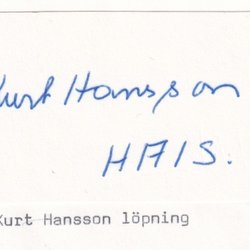 Kurt Hansson
HAIS.
Kurt Hansson löpning